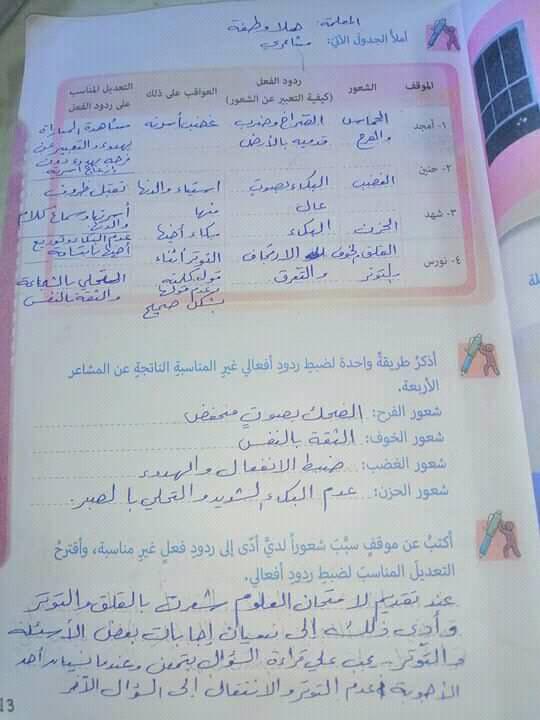 المعلمة: هلا وطفة
مشاعري
أملأ الجدول الآتي:
الموقف الشعور ردود الفعل (كيفية التعبير عن الشعور) العواقب على ذلك التعديل المناسب على ردود الفعل
١- أمجد الحماس والفرح الصراخ وضرب قدميه بالأرض غضب أسرته مشاهدة المباراة بهدوء والتعبير عن فرحه بهدوء دون إزعاج أسرته
٢- حنين الغضب البكاء بصوت عال استياء والدتها منها تقبل ظروف أسرتها وسماع كلام والدتها
٣- شهد الحزن البكاء بكاء أخيها عدم البكاء وتوديع أخيها بابتسامة
٤- نورس القلق الخوف والتوتر الارتجاف والتعرق التوتر أثناء قول كلمته وعدم قولها بشكل صحيح التحلي بالشجاعة والثقة بالنفس
أذكرُ طريقةً واحدة لضبطِ ردودِ أفعالي غيرِ المناسبةِ الناتجةِ عن المشاعر
الأربعة.
شعور الفرح: الضحك بصوت منخفض
شعور الخوف: الثقة بالنفس
شعور الغضب: ضبط الانفعال والهدوء
شعور الحزن: عدم البكاء الشديد والتحلي بالصبر.
أكتبُ عن موقفٍ سبَّبَ شعوراً لديَّ أدّى إلى ردودِ فعلٍ غيرِ مناسبة، وأقترحُ
التعديلَ المناسبَ لضبطِ ردودِ أفعالي.
عند تقديم لامتحان العلوم شعرت بالقلق والتوتر
وأدى ذلك إلى نسيان إجابات بعض الأسئلة
والتوتر. يجب علي قراءة السؤال بتمعن وعند نسيان أحد
الأجوبة عدم التوتر والانتقال إلى السؤال الآخر
13